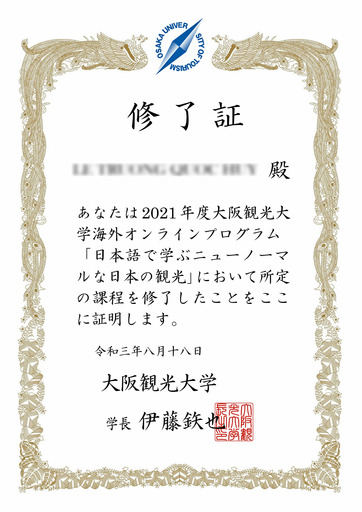 OSAKA UNIVERSITY OF TOURISM
修了証
殿
あなたは2021年度大阪観光大
学海外オンラインプログラム
「日本語で学ぶニューノーマ
ルな日本の観光」において所定
の課程を修了したことをここ
に証明します。
令和三年八月十八日
大阪観光大学
学長 伊藤鉄也